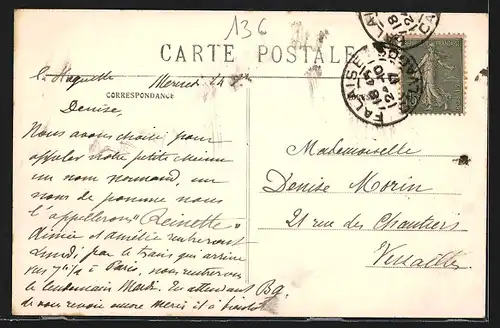 136
CARTE POSTALE
CORRESPONDANCE
Mercredi 24
Denise,
Nous avons choisi pour
appeler notre petite
un nom normand, un
nom de pomme nous
l'appellerons "Reinette"
Aimée et Amélie rentreront
Lundi, par le train qui arrive
vers 7h ½ à Paris, nous rentrerons
le lendemain Mardi. En attendant
de vous revoir encore merci et à bientôt
Mademoiselle
Denise Morin
21 rue des Chantiers
Versailles
FALAISE